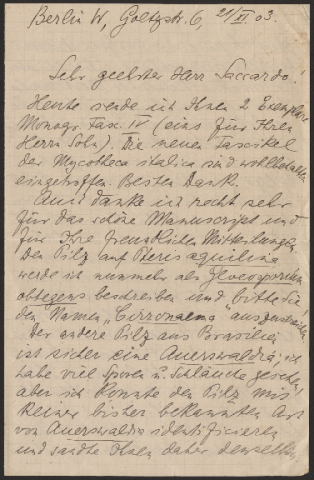 Berlin W, Goltzstr. 6, 21/XI. 03.
Sehr geehrter Herr Saccardo.
Heute sende ich Ihnen 2 Exemplare
Monogr. Fasc. IV (eins für Ihren
Herrn Sohn). Die neuen Fascikel
der Mycotheca italica sind wohlbehalten
eingetroffen. Besten Dank.
Auch danke ich recht sehr
für das schöne Manuscript und
für Ihre freundlichen Mitteilungen.
Den Pilz auf Pteris aquilina
werde ich nunmehr als Gloeosporium
obtegens beschreiben und bitte Sie
den Namen
Der andere Pilz aus Brasilien
ist sicher eine Auerswaldia; ich
habe viel Sporen u. Schläuche gesehen,
aber ich konnte den Pilz mit
keiner bisher bekannten Art
von Auerswaldia identificieren
und sandte Ihnen daher denselben